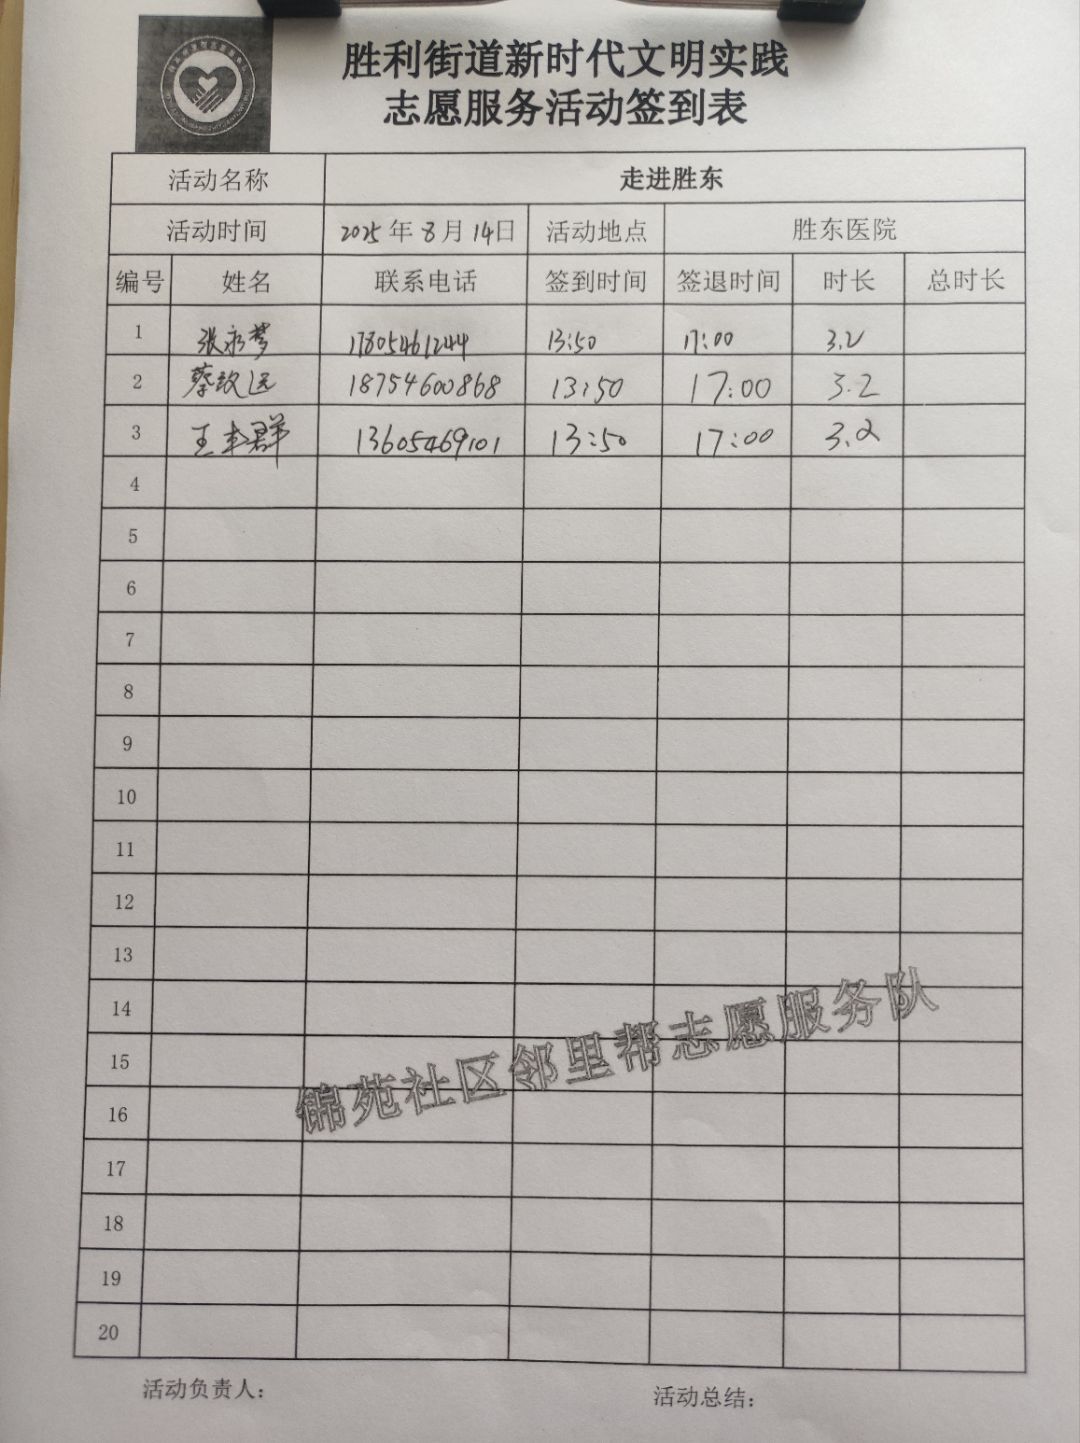 胜利街道新时代文明实践
志愿服务活动签到表
活动名称 走进胜东
活动时间 2025年8月14日 活动地点 胜东医院
编号 姓名 联系电话 签到时间 签退时间 时长 总时长
1 张永梦 17805461244 13:50 17:00 3.2
2 蔡致远 18754600868 13:50 17:00 3.2
3 王丰群 13605469101 13:50 17:00 3.2
4
5
6
7
8
9
10
11
12
13
14
15
16
17
18
19
20
锦苑社区邻里帮志愿服务队
活动负责人： 活动总结：